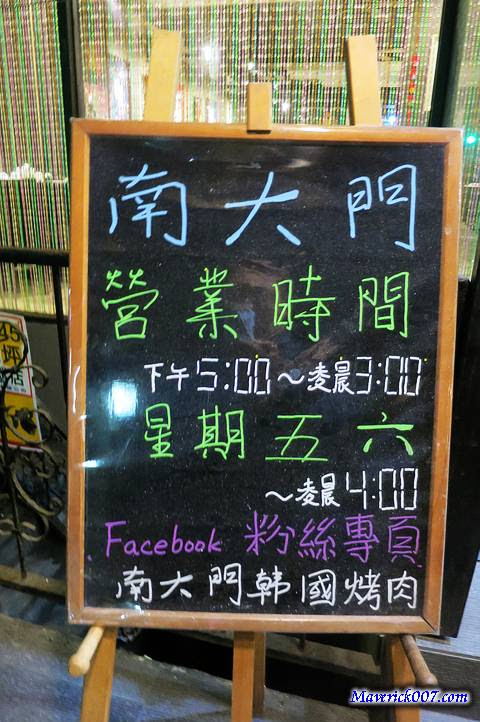 南大門
營業時間
下午5:00~凌晨3:00
星期五六
~凌晨4:00
Facebook 粉絲專頁
南大門韓國烤肉
45
坪
Maverick007.com